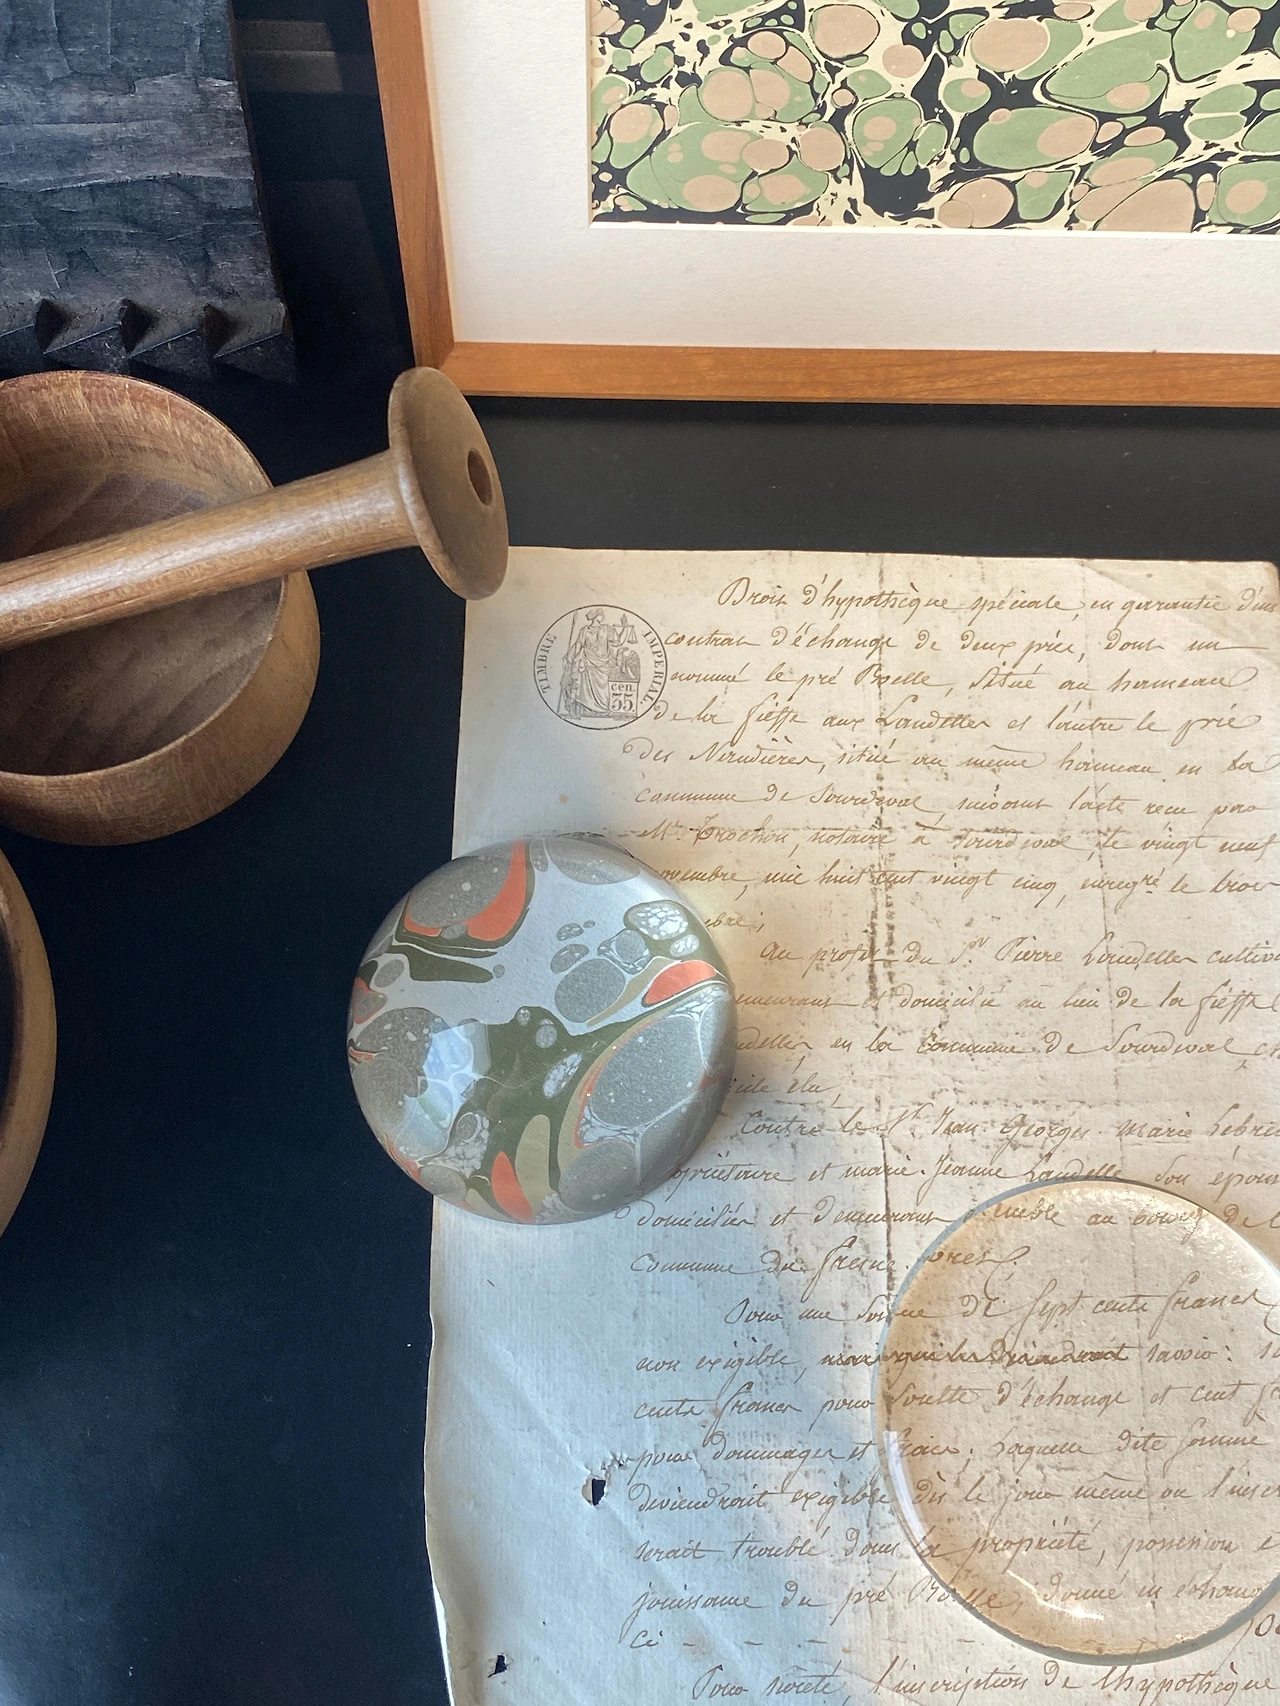 TIMBRE IMPERIAL.
cen. 35.
Droit d'hypothèque spéciale, en garantie d'un
contrat d'échange de deux prés, dont un
nommé le pré Roelle, situé au hameau
de la fieffe aux Landelles et l'autre le pré
des situé au même hameau en la
commune de Sourdeval, suivant l'acte recu par
Mr. Trochon, notaire à Sourdeval, le vingt neuf
ovembre, mil huit cent vingt cinq, enregré le
mbre;
Au profit du Sr. Pierre Landelles cultiva
emeurant et domicilié au lieu de la fieffe
ndelles, en la Commune de Sourdeval,
icile élu,
Contre le Sr. Jean Georges marie
opriétaire et marie Jeanne Landelle son épou
domiciliés et demeurant ensemble au bourg de
Commune du fresne
Pour une somme de Sept cents francs
non exigible, mais qui le deviendrait savoir:
cents francs pour soulte d'échange et cent
pour dommages et frais; laquelle dite somme
deviendrait exigible dès le jour même ou l'inscr
serait troublé dans la propriété, possession e
jouissance du pré Roelle, donné en échang
Ci - - - -
Pour sûreté, l'inscription de l'hypothèque